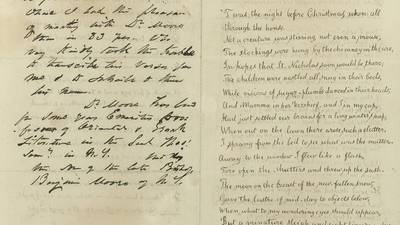 whom I had the pleasure
of meeting with Dr Moore
then in 83 year. Who
very kindly took the trouble
to transcribe this Verses for
me & to subscribe to them
his name.
Dr. Moore has been
for some years Emeritus Prof
of Oriental & Greek
Literature in the
in N.Y.
the Son of the late Bishop
Benjamin Moore of N.Y.
'Twas the night before Christmas, when all
through the house
Not a creature was stirring, not even a mouse;
The stockings were hung by the chimney with care,
In hopes that St. Nicholas soon would be there;
The children were nestled all snug in their beds,
While visions of sugar-plums danced in their heads;
And Mamma in her 'kerchief, and I in my cap,
Had just settled our brains for a long winter's nap,
When out on the lawn there arose such a clatter,
I sprang from the bed to see what was the matter.
Away to the window I flew like a flash,
Tore open the shutters and threw up the sash.
The moon on the breast of the new-fallen snow,
Gave the lustre of mid-day to objects below,
When, what to my wondering eyes should appear,
But a miniature sleigh and eight